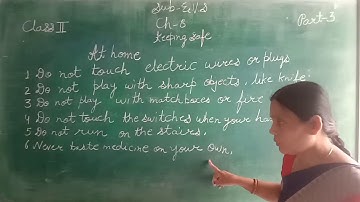 Sub- E.V.S
Class II
Ch-8
Part-3
Keeping safe
At home
1. Do not touch electric wires or plugs
2. Do not play with sharp objects, like knife.
3. Do not play with matchboxes or fire
4. Do not touch the switches when your han
5. Do not run on the stairs.
6. Never taste medicine on your own.